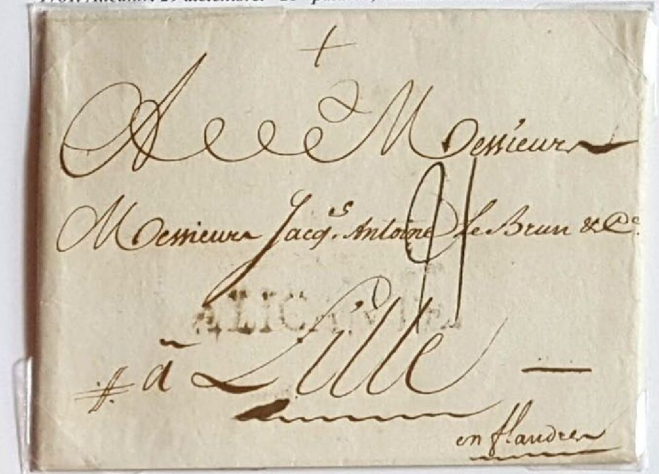 +
A Messieurs
Messieurs Jacq.s Antoine le Brun & Ce.
ALICANTE
à Lille
en flandres